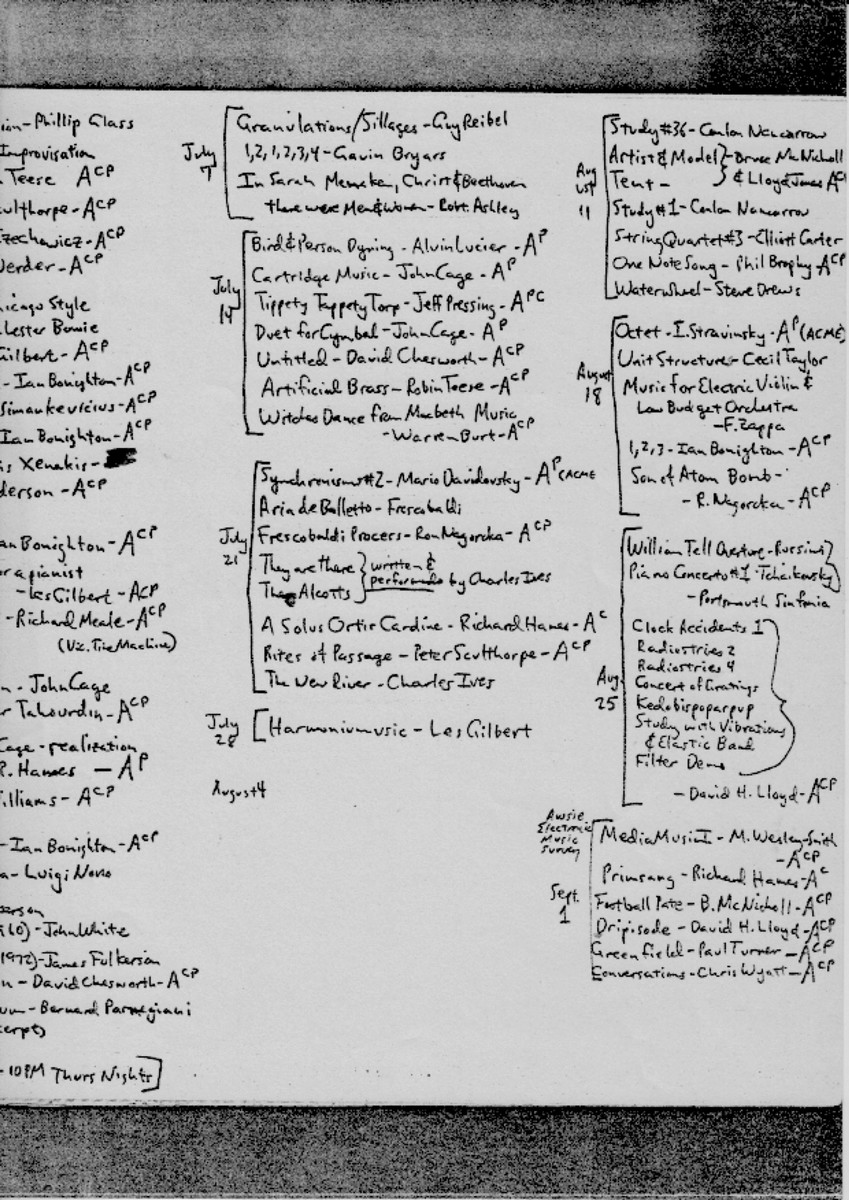 ion-Phillip Glass
Improvisation
Teese ACP
culthorpe-ACP
Czechowicz-ACP
Werder-ACP
hicago Style
Lester Bowie
Gilbert-ACP
- Ian Bonighton-ACP
Simankevicius-ACP
Ian Bonighton-ACP
is Xenakis-
derson-ACP
an Bonighton-ACP
or a pianist
-Les Gilbert-ACP
-Richard Meale-ACP
(Vic. Time Machine)
n-John Cage
r Tahourdin-ACP
Cage-realization
R. Hames-AP
illiams-ACP
-Ian Bonighton-ACP
a-Luigi Nono
erson
960)-John White
1972)-James Fulkerson
n-David Chesworth-ACP
um-Bernard Parmegiani
cerpt)
-10PM Thurs Nights]
July 7
Granulations/Sillages-Guy Reibel
1,2,1,2,3,4-Gavin Bryars
In Sarah Mencken, Christ & Beethoven
there were Men & Women-Robt. Ashley
July 14
Bird & Person Dyning-Alvin Lucier-AP
Cartridge Music-John Cage-AP
Tippety Tappety Torp-Jeff Pressing-APC
Duet for Cymbal-John Cage-AP
Untitled-David Chesworth-ACP
Artificial Brass-Robin Teese-ACP
Witches Dance from Macbeth Music
-Warren Burt-ACP
July 21
Synchronisms#2-Mario Davidovsky-AP(ACME
Aria de Balletto-Frescobaldi
Frescobaldi Process-Ron Nagorcka-ACP
They are there } written &
The Alcotts } performed by Charles Ives
A Solus Ortir Cardine-Richard Hames-AC
Rites of Passage-Peter Scutthorpe-ACP
The New River-Charles Ives
July 28
[Harmoniumusic-Les Gilbert
August 4
August 11
Study#36-Conlon Nancarrow
Artist & Model }-Bruce McNicholl
Tent- } & Lloyd Jones AC
Study#1-Conlon Nancarrow
String Quartet#3-Elliott Carter
One Note Song-Phil Brophy-ACP
Waterwheel-Steve Drews
August 18
Octet-I. Stravinsky-AP(ACME)
Unit Structure-Cecil Taylor
Music for Electric Violin &
Low Budget Orchestra
-F. Zappa
1,2,3-Ian Bonighton-ACP
Son of Atom Bomb-
-R. Nagorcka-ACP
Aug 25
William Tell Overture-Rossini}
Piano Concerto#1-Tchaikovsky}
-Portsmouth Sinfonia
Clock Accidents 1
Radiostries 2
Radiostries 4
Concert of Gratings
Kedobispoparpup
Study with Vibrations
& Elastic Band
Filter Demo
-David H. Lloyd-ACP
Awsie
Electronic
Music
Survey
Sept. 1
Media Music I-M. Wesley-Smith
-ACP
Primsang-Richard Hames-AC
Football Pate-B. McNicholl-ACP
Dripisode-David H. Lloyd-ACP
Greenfield-Paul Turner-ACP
Conversations-Chris Wyatt-ACP